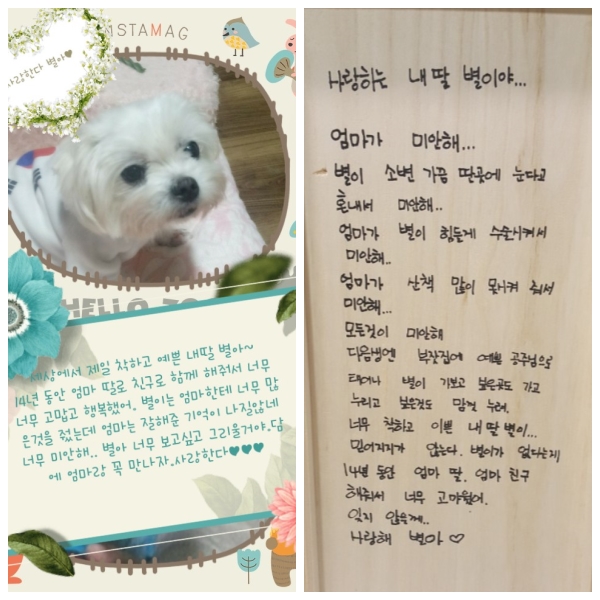 INSTAMAG
사랑한다 별아♥
HELLO TO
세상에서 제일 착하고 예쁜 내딸 별아~
14년 동안 엄마 딸로 친구로 함께 해줘서 너무
너무 고맙고 행복했어. 별이는 엄마한테 너무 많
은것을 줬는데 엄마는 잘해준 기억이 나질않네
너무 미안해.. 별아 너무 보고싶고 그리울거야.담
에 엄마랑 꼭 만나자.사랑한다♥♥♥
사랑하는 내 딸 별이야...
엄마가 미안해...
별이 소변 가끔 딴곳에 눈다고
혼내서 미안해..
엄마가 별이 힘들게 수술시켜서
미안해..
엄마가 산책 많이 못시켜 줘서
미안해...
모든것이 미안해
다음생엔 부잣집에 예쁜 공주님으로
태어나 별이 가보고 싶은곳도 가고
누리고 싶은것도 맘껏 누려.
너무 착하고 이쁜 내 딸 별이...
믿어지지가 않는다. 별이가 없다는게
14년 동안 엄마 딸, 엄마 친구
해줘서 너무 고마웠어.
잊지 않을게..
사랑해 별아 ♡